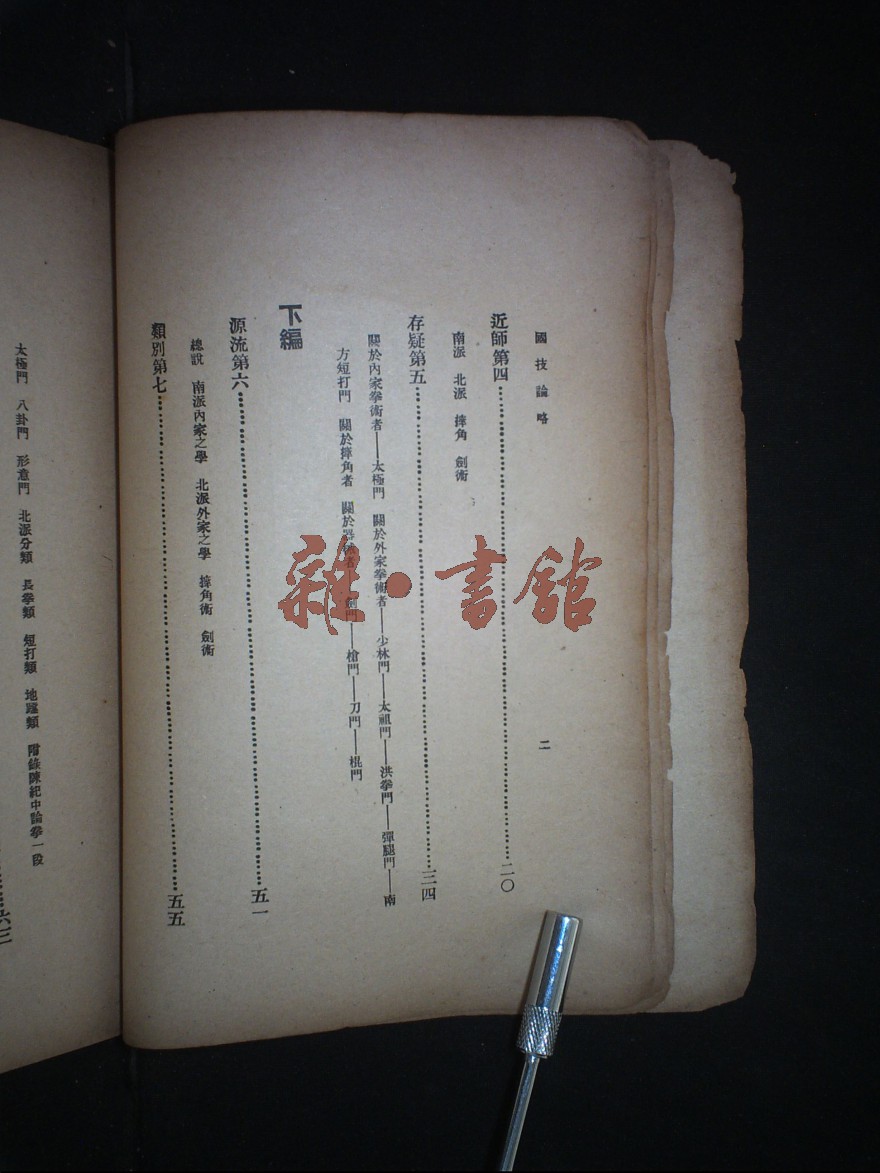 國技論略
二
近師第四……二〇
南派 北派 摔角 劍術
存疑第五……三四
關於內家拳術者——太極門 關於外家拳術者——少林門——太祖門——洪拳門——彈腿門——南
方短打門 關於摔角者 關於器械者 劍門——槍門——刀門——棍門
下編
源流第六……五一
總說 南派內家之學 北派外家之學 摔角術 劍術
類別第七……五五
太極門 八卦門 形意門 北派分類 長拳類 短打類 地蹚類 附錄陳紀中論拳一段
六三
雜·書館